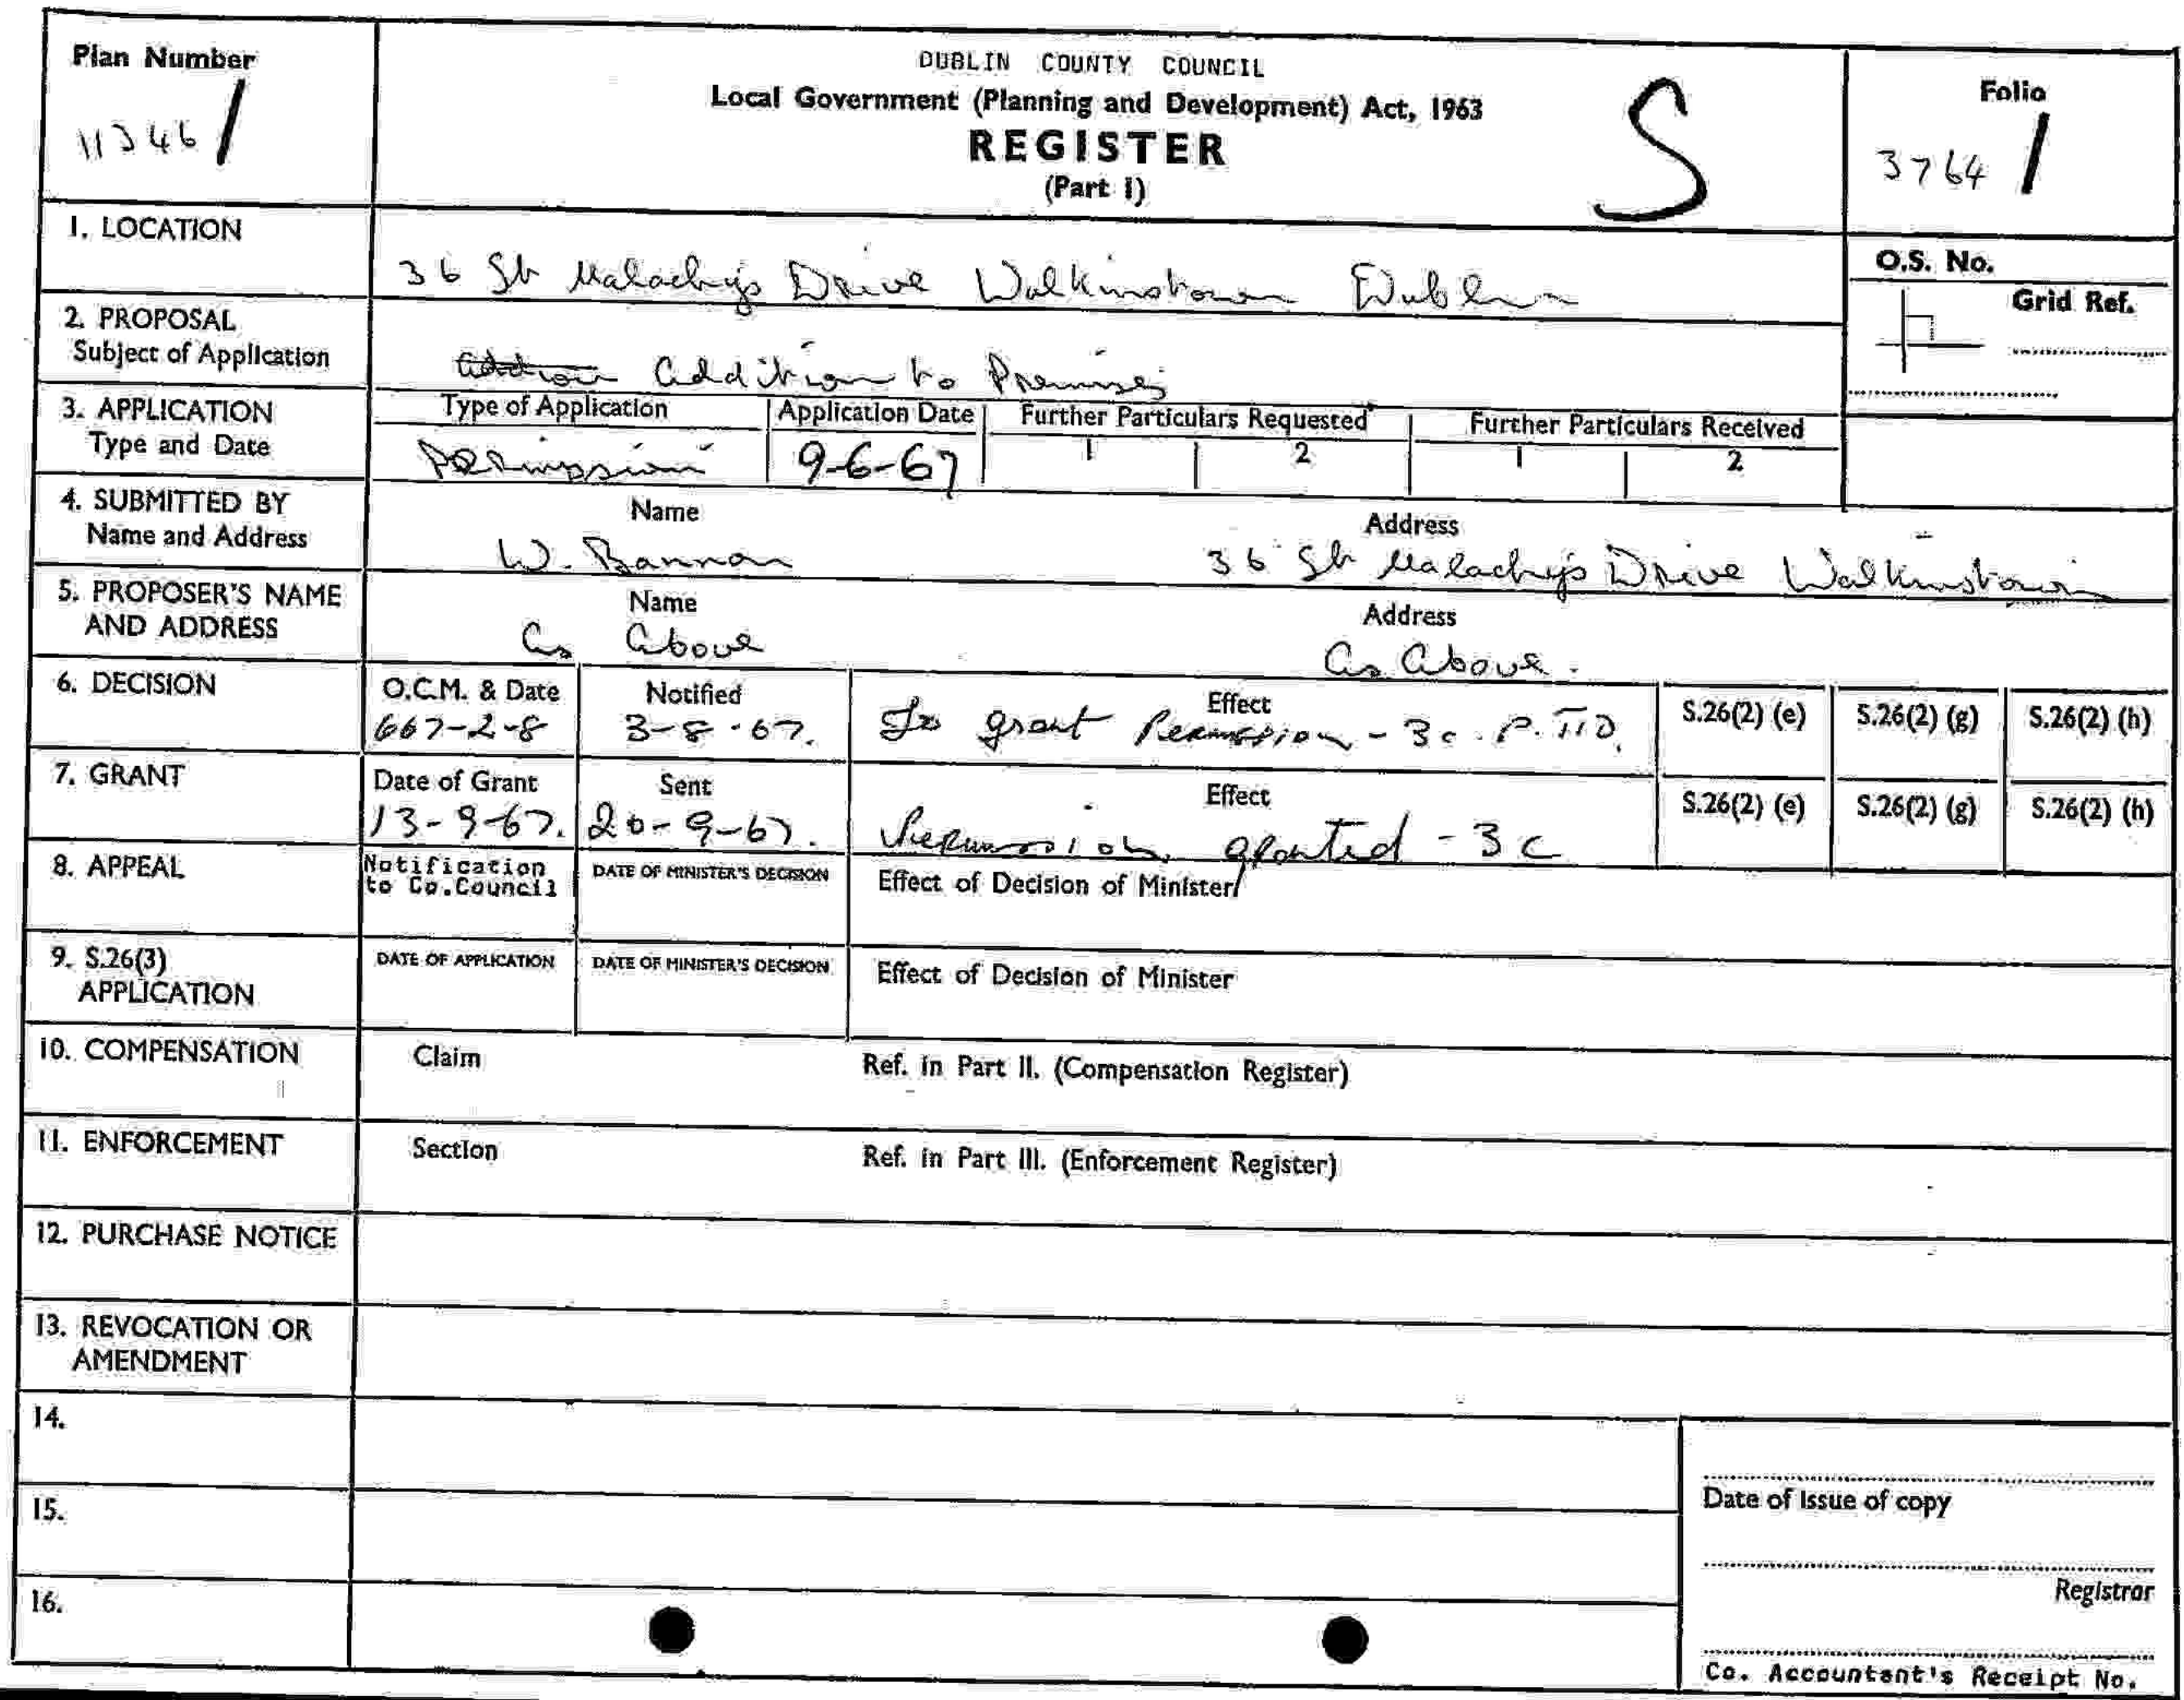 Plan Number
11346 /
DUBLIN COUNTY COUNCIL
Local Government (Planning and Development) Act, 1963
REGISTER
(Part I)
S
Folio
3764 /
1. LOCATION
36 St Malachy's Drive Walkinstown Dublin
O.S. No.
Grid Ref.
2. PROPOSAL
Subject of Application
Addition to Premises
3. APPLICATION
Type and Date
Type of Application
Application Date
Further Particulars Requested
Further Particulars Received
Permission
9-6-67
1
2
1
2
4. SUBMITTED BY
Name and Address
Name
Address
W. Bannon
36 St Malachy's Drive Walkinstown
5. PROPOSER'S NAME
AND ADDRESS
Name
Address
As Above
As Above.
6. DECISION
O.C.M. & Date
Notified
Effect
S.26(2) (e)
S.26(2) (g)
S.26(2) (h)
667-2-8
3-8-67.
To grant Permission - 3c. P.
7. GRANT
Date of Grant
Sent
Effect
S.26(2) (e)
S.26(2) (g)
S.26(2) (h)
13-9-67.
20-9-67.
Permission granted - 3c
8. APPEAL
Notification
to Co.Council
DATE OF MINISTER'S DECISION
Effect of Decision of Minister
9. S.26(3)
APPLICATION
DATE OF APPLICATION
DATE OF MINISTER'S DECISION
Effect of Decision of Minister
10. COMPENSATION
Claim
Ref. in Part II. (Compensation Register)
11. ENFORCEMENT
Section
Ref. in Part III. (Enforcement Register)
12. PURCHASE NOTICE
13. REVOCATION OR
AMENDMENT
14.
15.
16.
Date of issue of copy
Registrar
Co. Accountant's Receipt No.